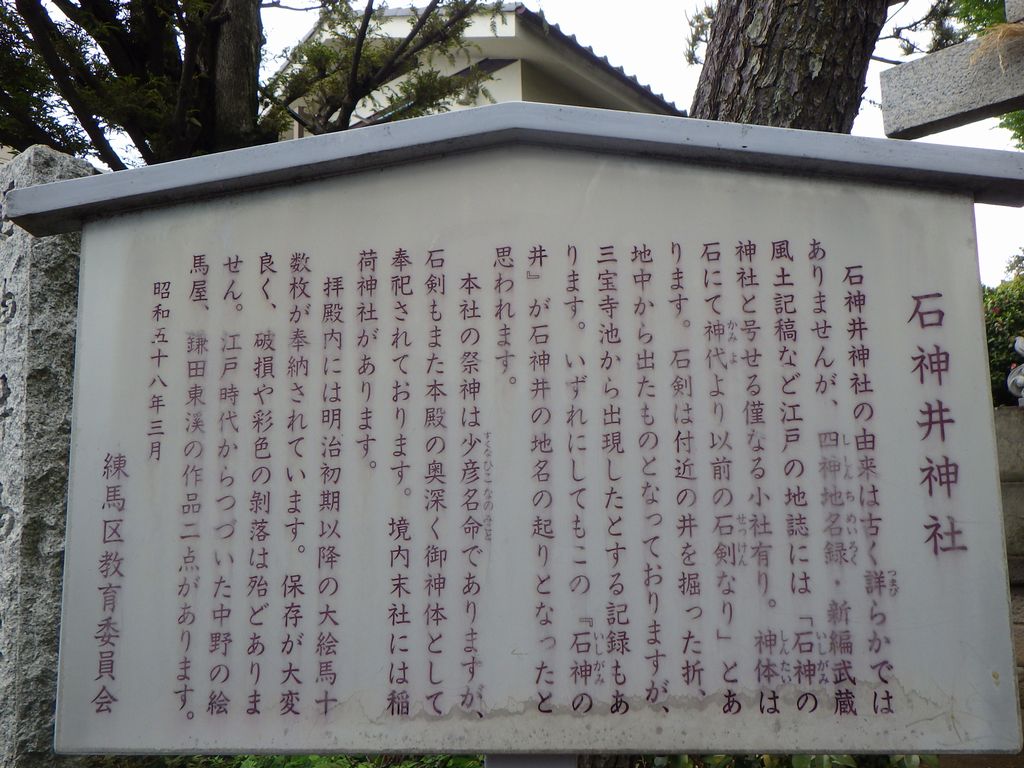 石神井神社
石神井神社の由来は古く詳らかでは
ありませんが、四神地名録・新編武蔵
風土記稿など江戸の地誌には「石神の
神社と号せる僅なる小社有り。神体は
石にて神代より以前の石剣なり」とあ
ります。石剣は付近の井を掘った折、
地中から出たものとなっておりますが、
三宝寺池から出現したとする記録もあ
ります。いずれにしてもこの『石神の
井』が石神井の地名の起りとなったと
思われます。
本社の祭神は少彦名命でありますが、
石剣もまた本殿の奥深く御神体として
奉祀されております。境内末社には稲
荷神社があります。
拝殿内には明治初期以降の大絵馬十
数枚が奉納されています。保存が大変
良く、破損や彩色の剝落は殆どありま
せん。江戸時代からつづいた中野の絵
馬屋、鎌田東溪の作品二点があります。
昭和五十八年三月
練馬区教育委員会